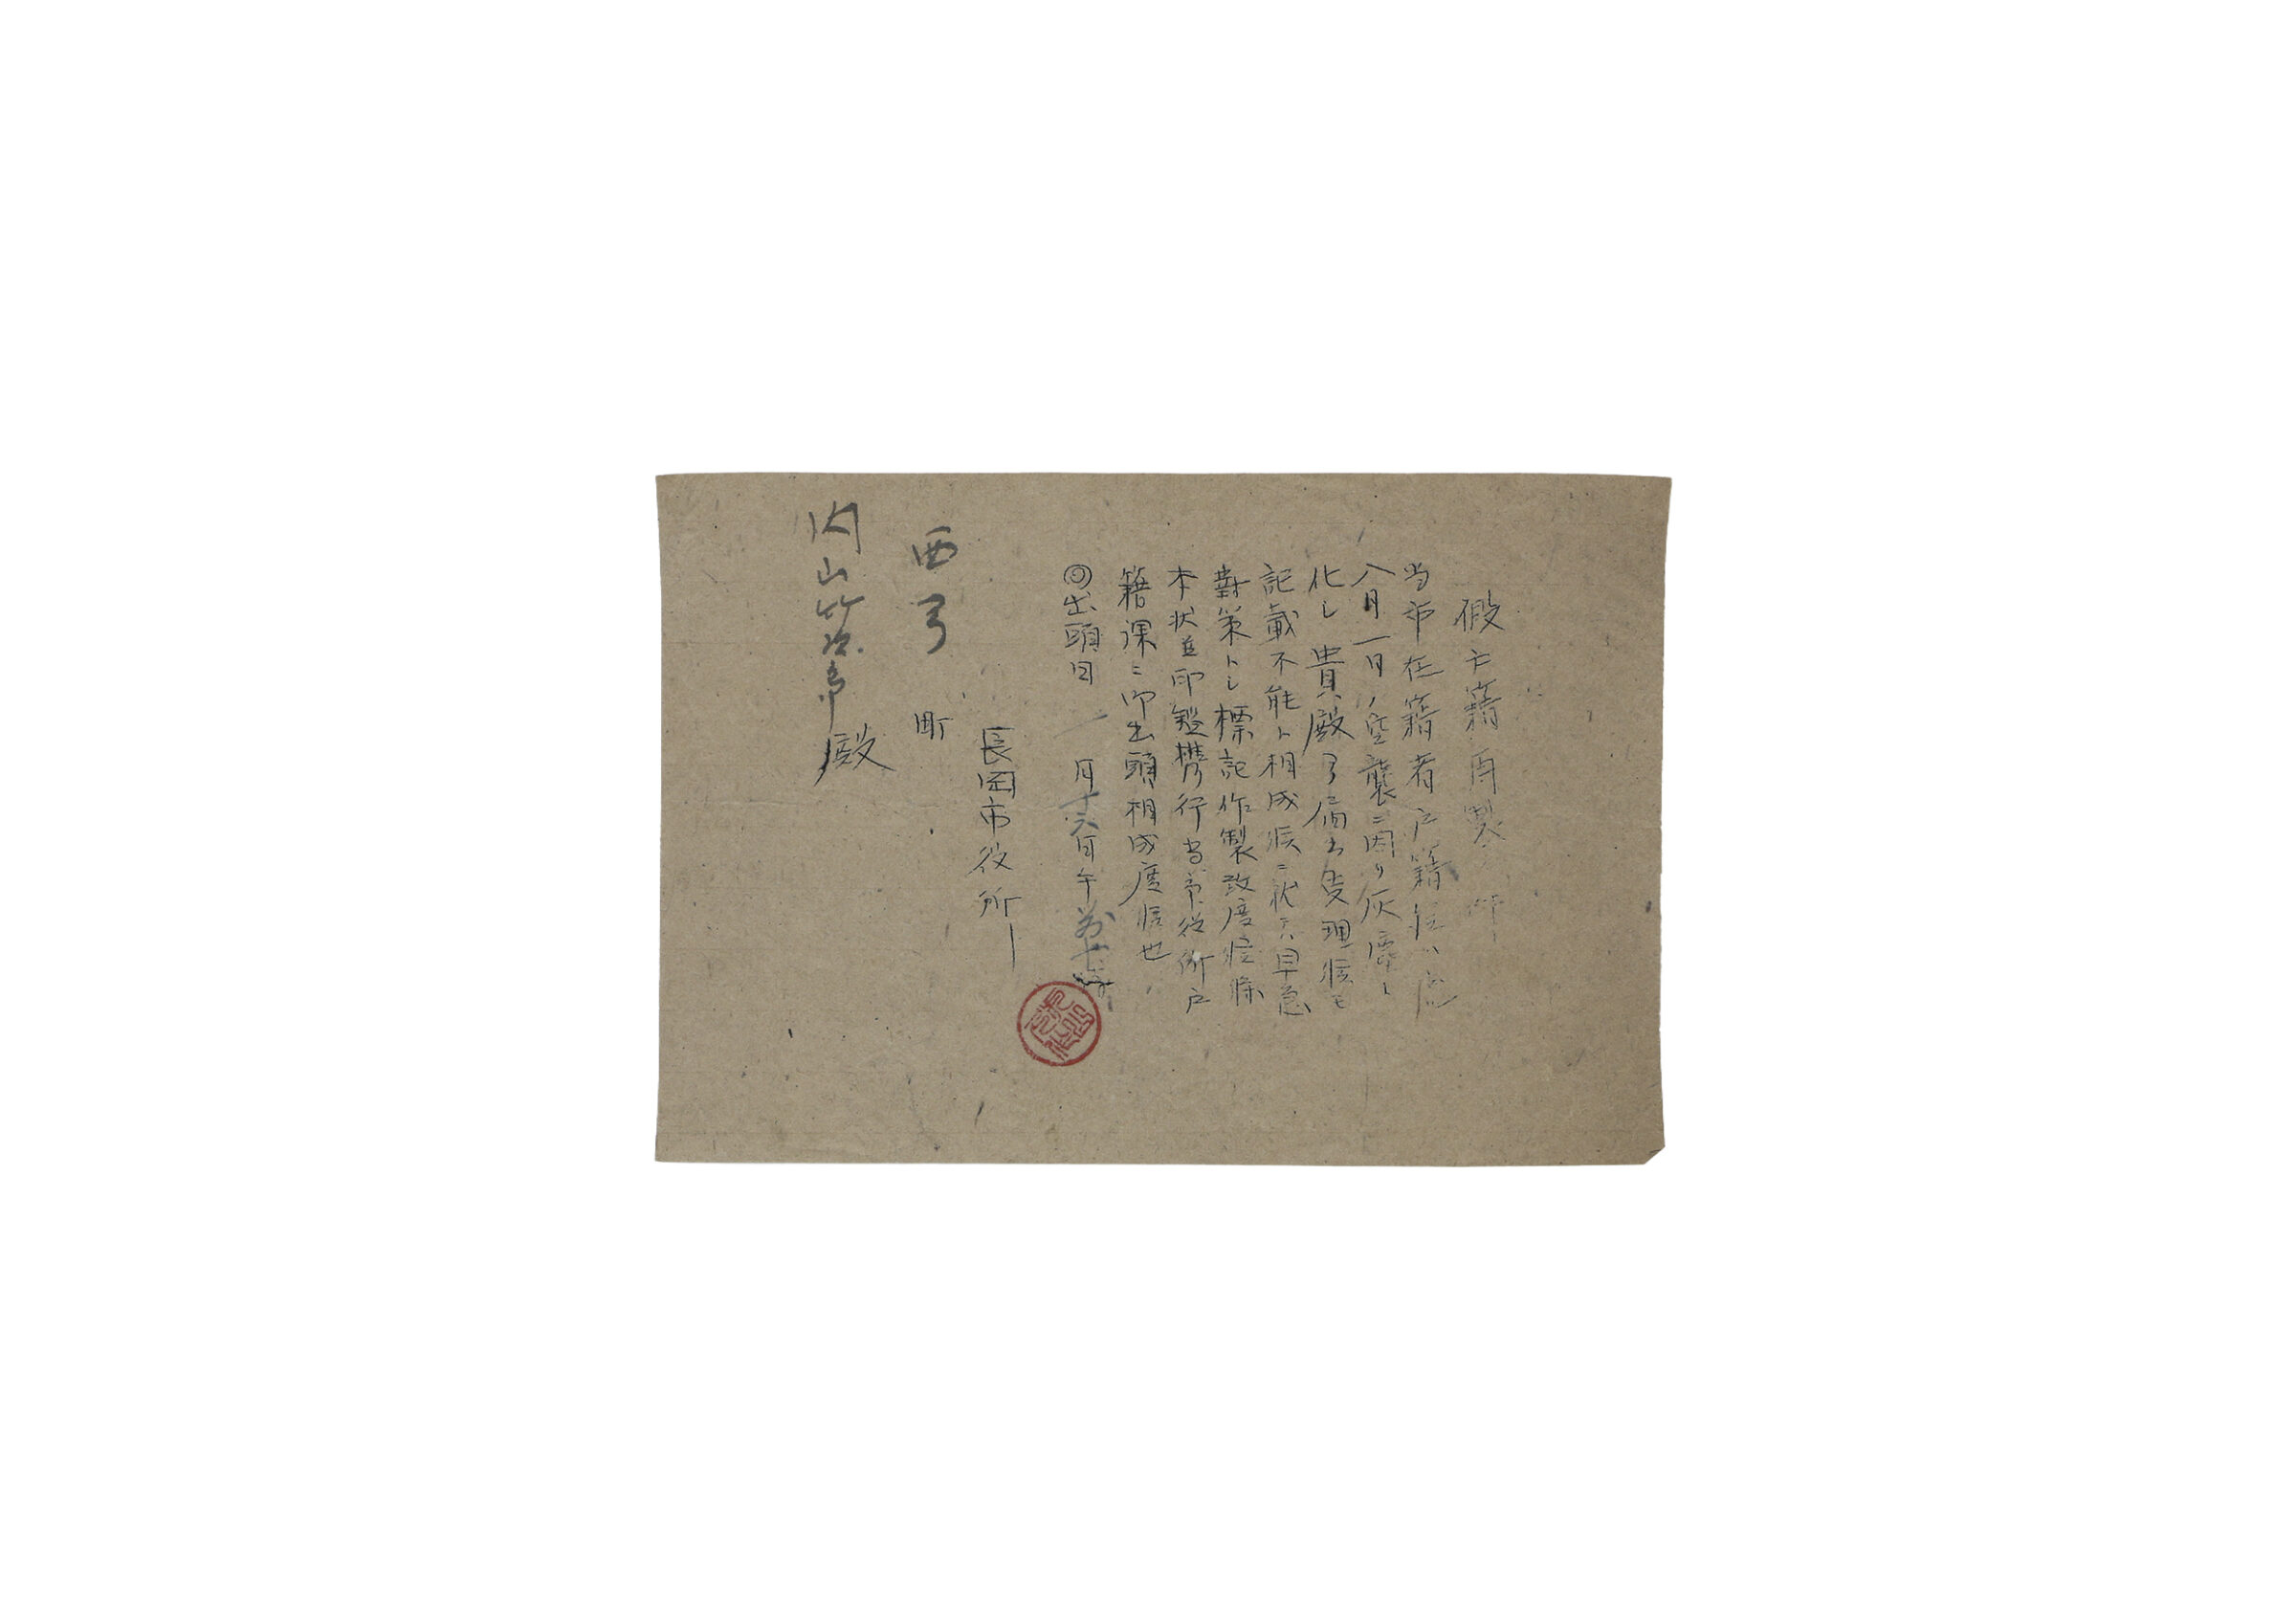 假戸籍再製
当市在籍者戸籍
八月一日ノ空襲ニ因リ灰塵ト
化シ貴殿ヨリ届出受理候モ
記載不能ト相成候ニ状大早急
對策トシ標記作製致度候條
本状並印鑑携行当市役所戸
籍課ニ御出頭相成度候也
◎出頭日 一月十六日午前七時
長岡市役所
西弓町
内山竹次郎殿